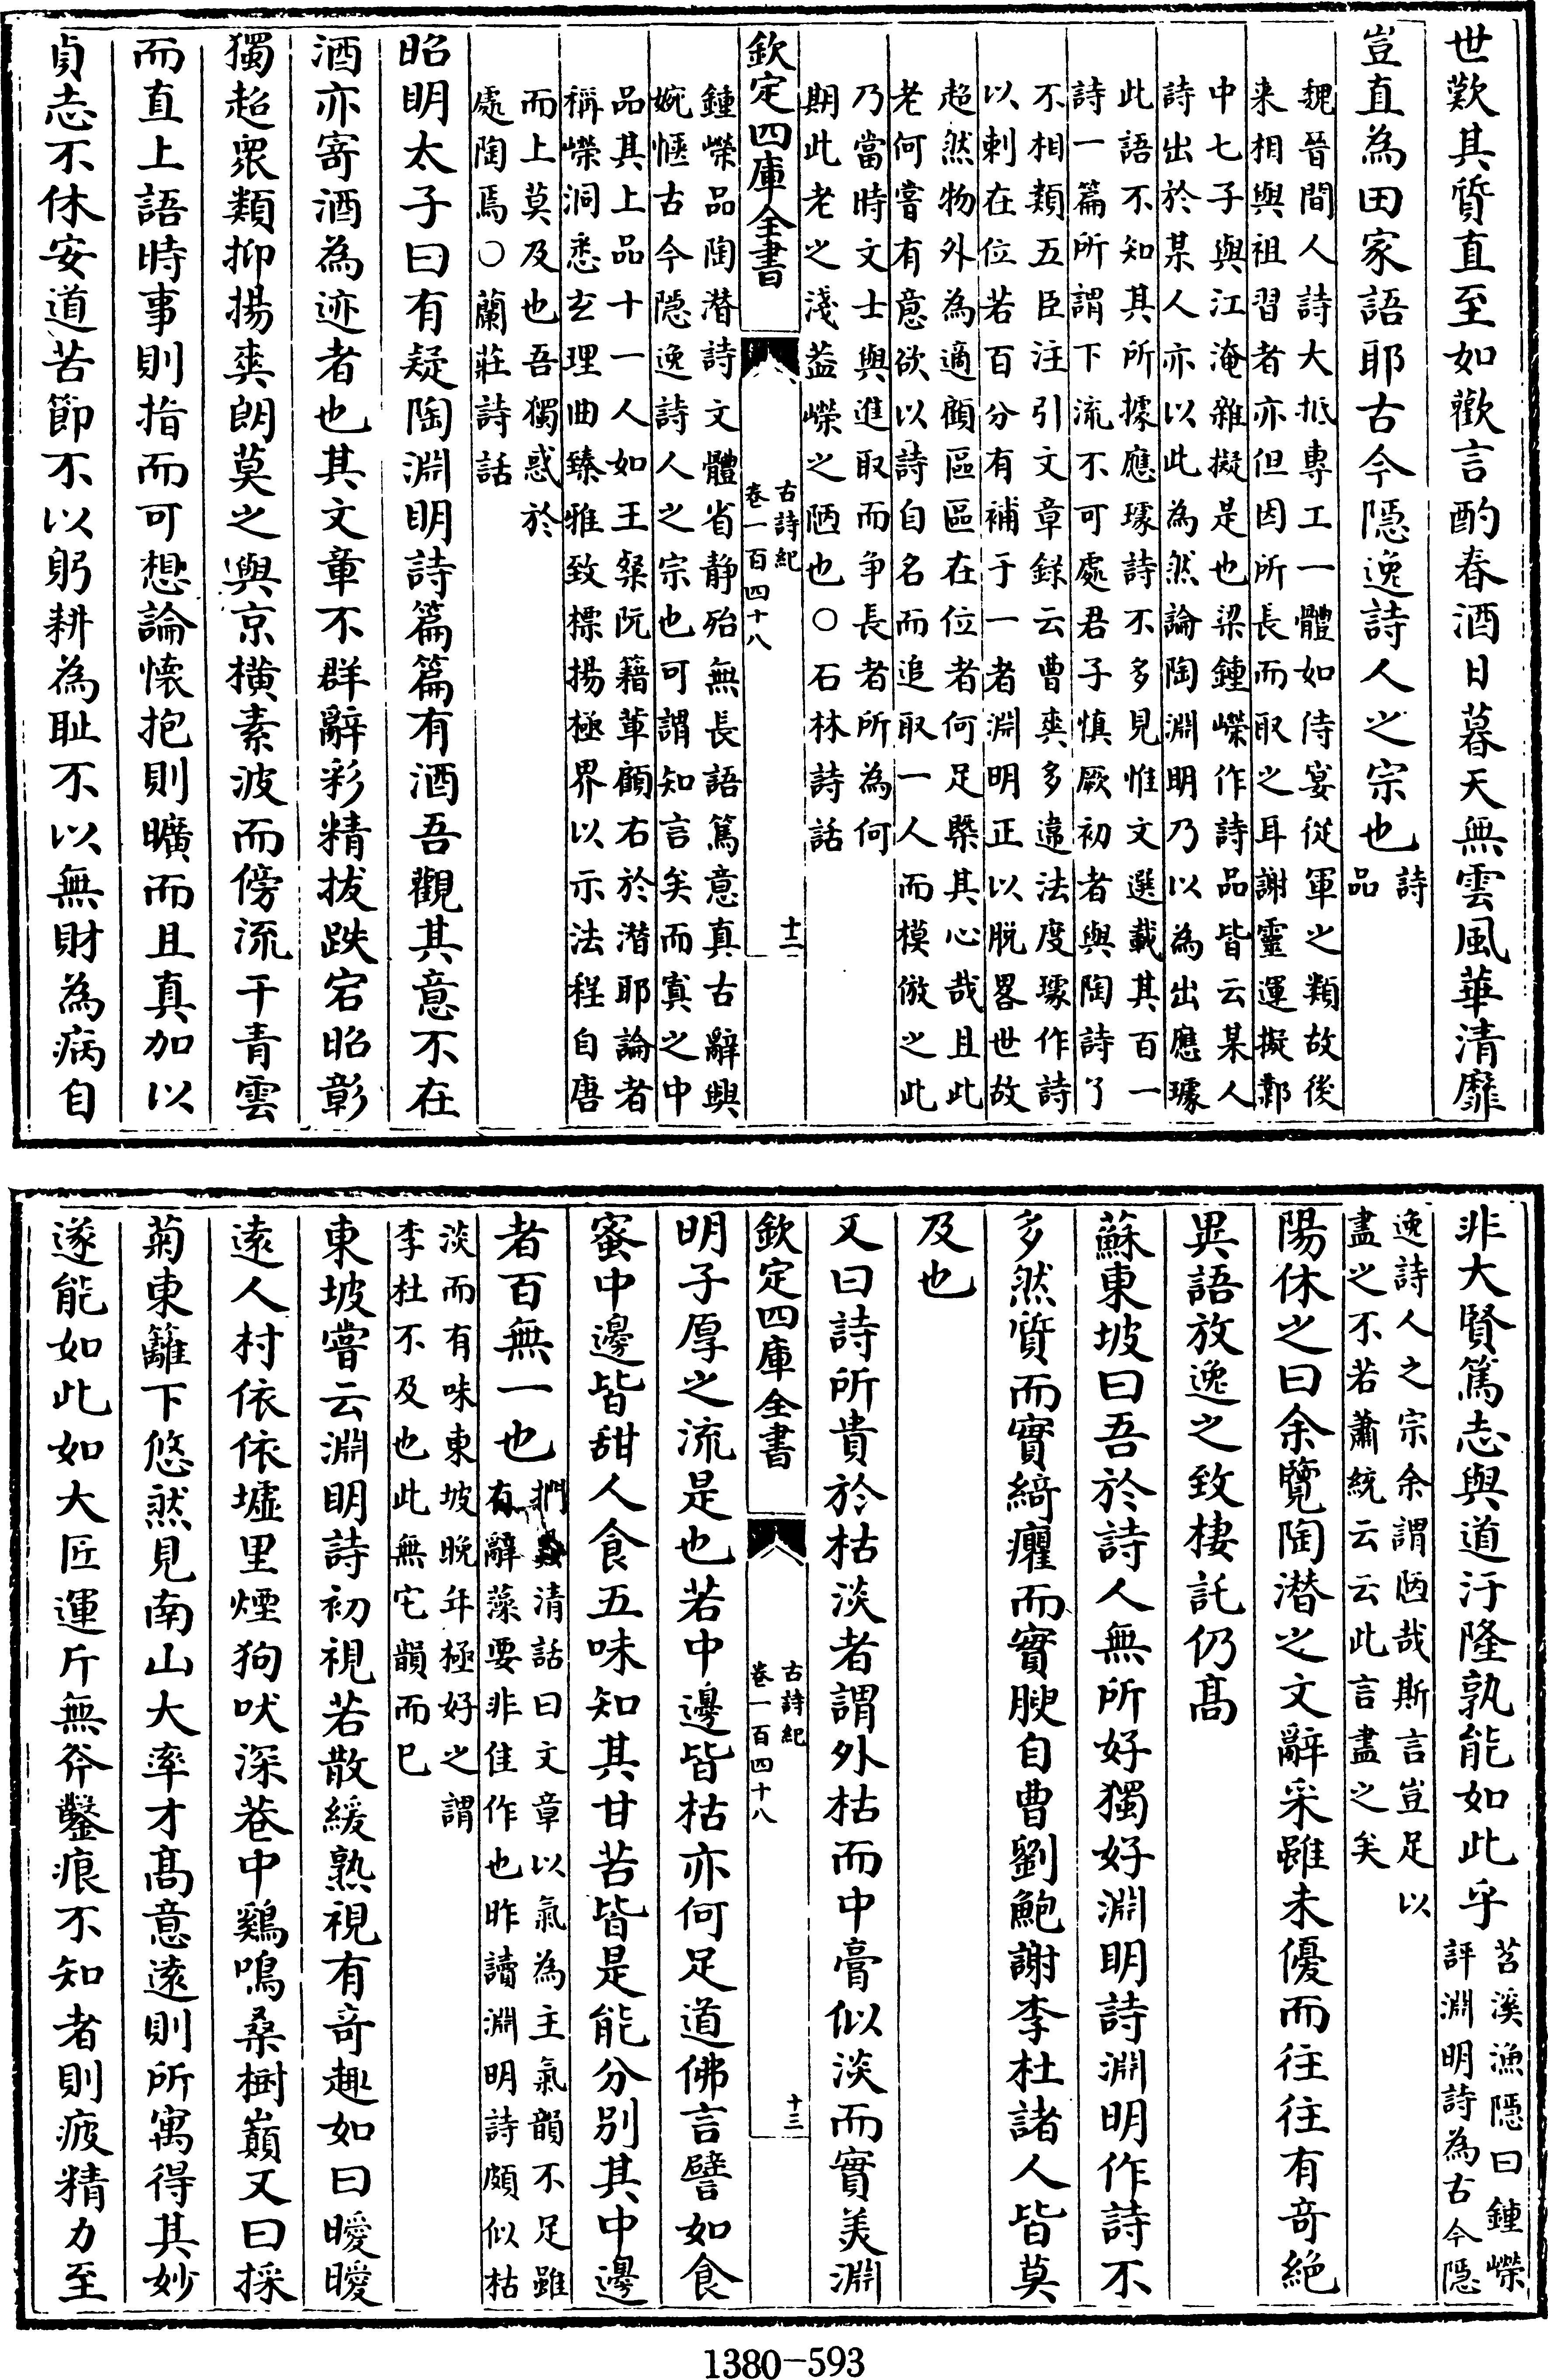 世歎其質直至如歡言酌春酒日暮天無雲風華清靡
豈直為田家語耶古今隠逸詩人之宗也詩
品
魏晉間人詩大抵專工一體如侍宴從軍之類故後
来相與祖習者亦但因所長而取之耳謝靈運擬鄴
中七子與江淹雜擬是也梁鍾嶸作詩品皆云某人
詩出於某人亦以此為然論陶淵明乃以為出應璩
此語不知其所據應璩詩不多見惟文選載其百一
詩一篇所謂下流不可處君子慎厥初者與陶詩了
不相類五臣注引文章録云曹爽多違法度璩作詩
以刺在位若百分有補于一者淵明正以脱畧世故
超然物外為適顧區區在位者何足槩其心哉且此
老何嘗有意欲以詩自名而追取一人而模倣之此
乃當時文士與進取而争長者所為何
期此老之淺葢嶸之陋也○石林詩話
欽定四庫全書
古詩紀
卷一百四十八
十二
鍾嶸品陶潜詩文體省静殆無長語篤意真古辭興
婉愜古今隠逸詩人之宗也可謂知言矣而寘之中
品其上品十一人如王粲阮籍軰顧右於潜耶論者
稱嶸洞悉玄理曲臻雅致標揚極界以示法程自唐
而上莫及也吾獨惑於
處陶焉○蘭莊詩話
昭明太子曰有疑陶淵明詩篇篇有酒吾觀其意不在
酒亦寄酒為迹者也其文章不群辭彩精拔跌宕昭彰
獨超衆類抑揚爽朗莫之與京横素波而傍流干青雲
而直上語時事則指而可想論懐抱則曠而且真加以
貞志不休安道苦節不以躬耕為耻不以無財為病自
非大賢篤志與道汙隆孰能如此乎苕溪漁隠曰鍾嶸
評淵明詩為古今隠
逸詩人之宗余謂陋哉斯言豈足以
盡之不若蕭統云云此言盡之矣
陽休之曰余覽陶潜之文辭采雖未優而往往有奇絶
異語放逸之致棲託仍髙
蘇東坡曰吾於詩人無所好獨好淵明詩淵明作詩不
多然質而實綺癯而實腴自曹劉鮑謝李杜諸人皆莫
及也
又曰詩所貴於枯淡者謂外枯而中膏似淡而實美淵
欽定四庫全書
古詩紀
卷一百四十八
十三
明子厚之流是也若中邊皆枯亦何足道佛言譬如食
蜜中邊皆甜人食五味知其甘苦皆是能分别其中邊
者百無一也捫蝨清話曰文章以氣為主氣韻不足雖
有辭藻要非佳作也昨讀淵明詩頗似枯
淡而有味東坡晚年極好之謂
李杜不及也此無它韻而已
東坡嘗云淵明詩初視若散緩熟視有奇趣如曰曖曖
逺人村依依墟里煙狗吠深巷中鷄鳴桑樹巔又曰採
菊東籬下悠然見南山大率才髙意逺則所寓得其妙
遂能如此如大匠運斤無斧鑿痕不知者則疲精力至
1380-593